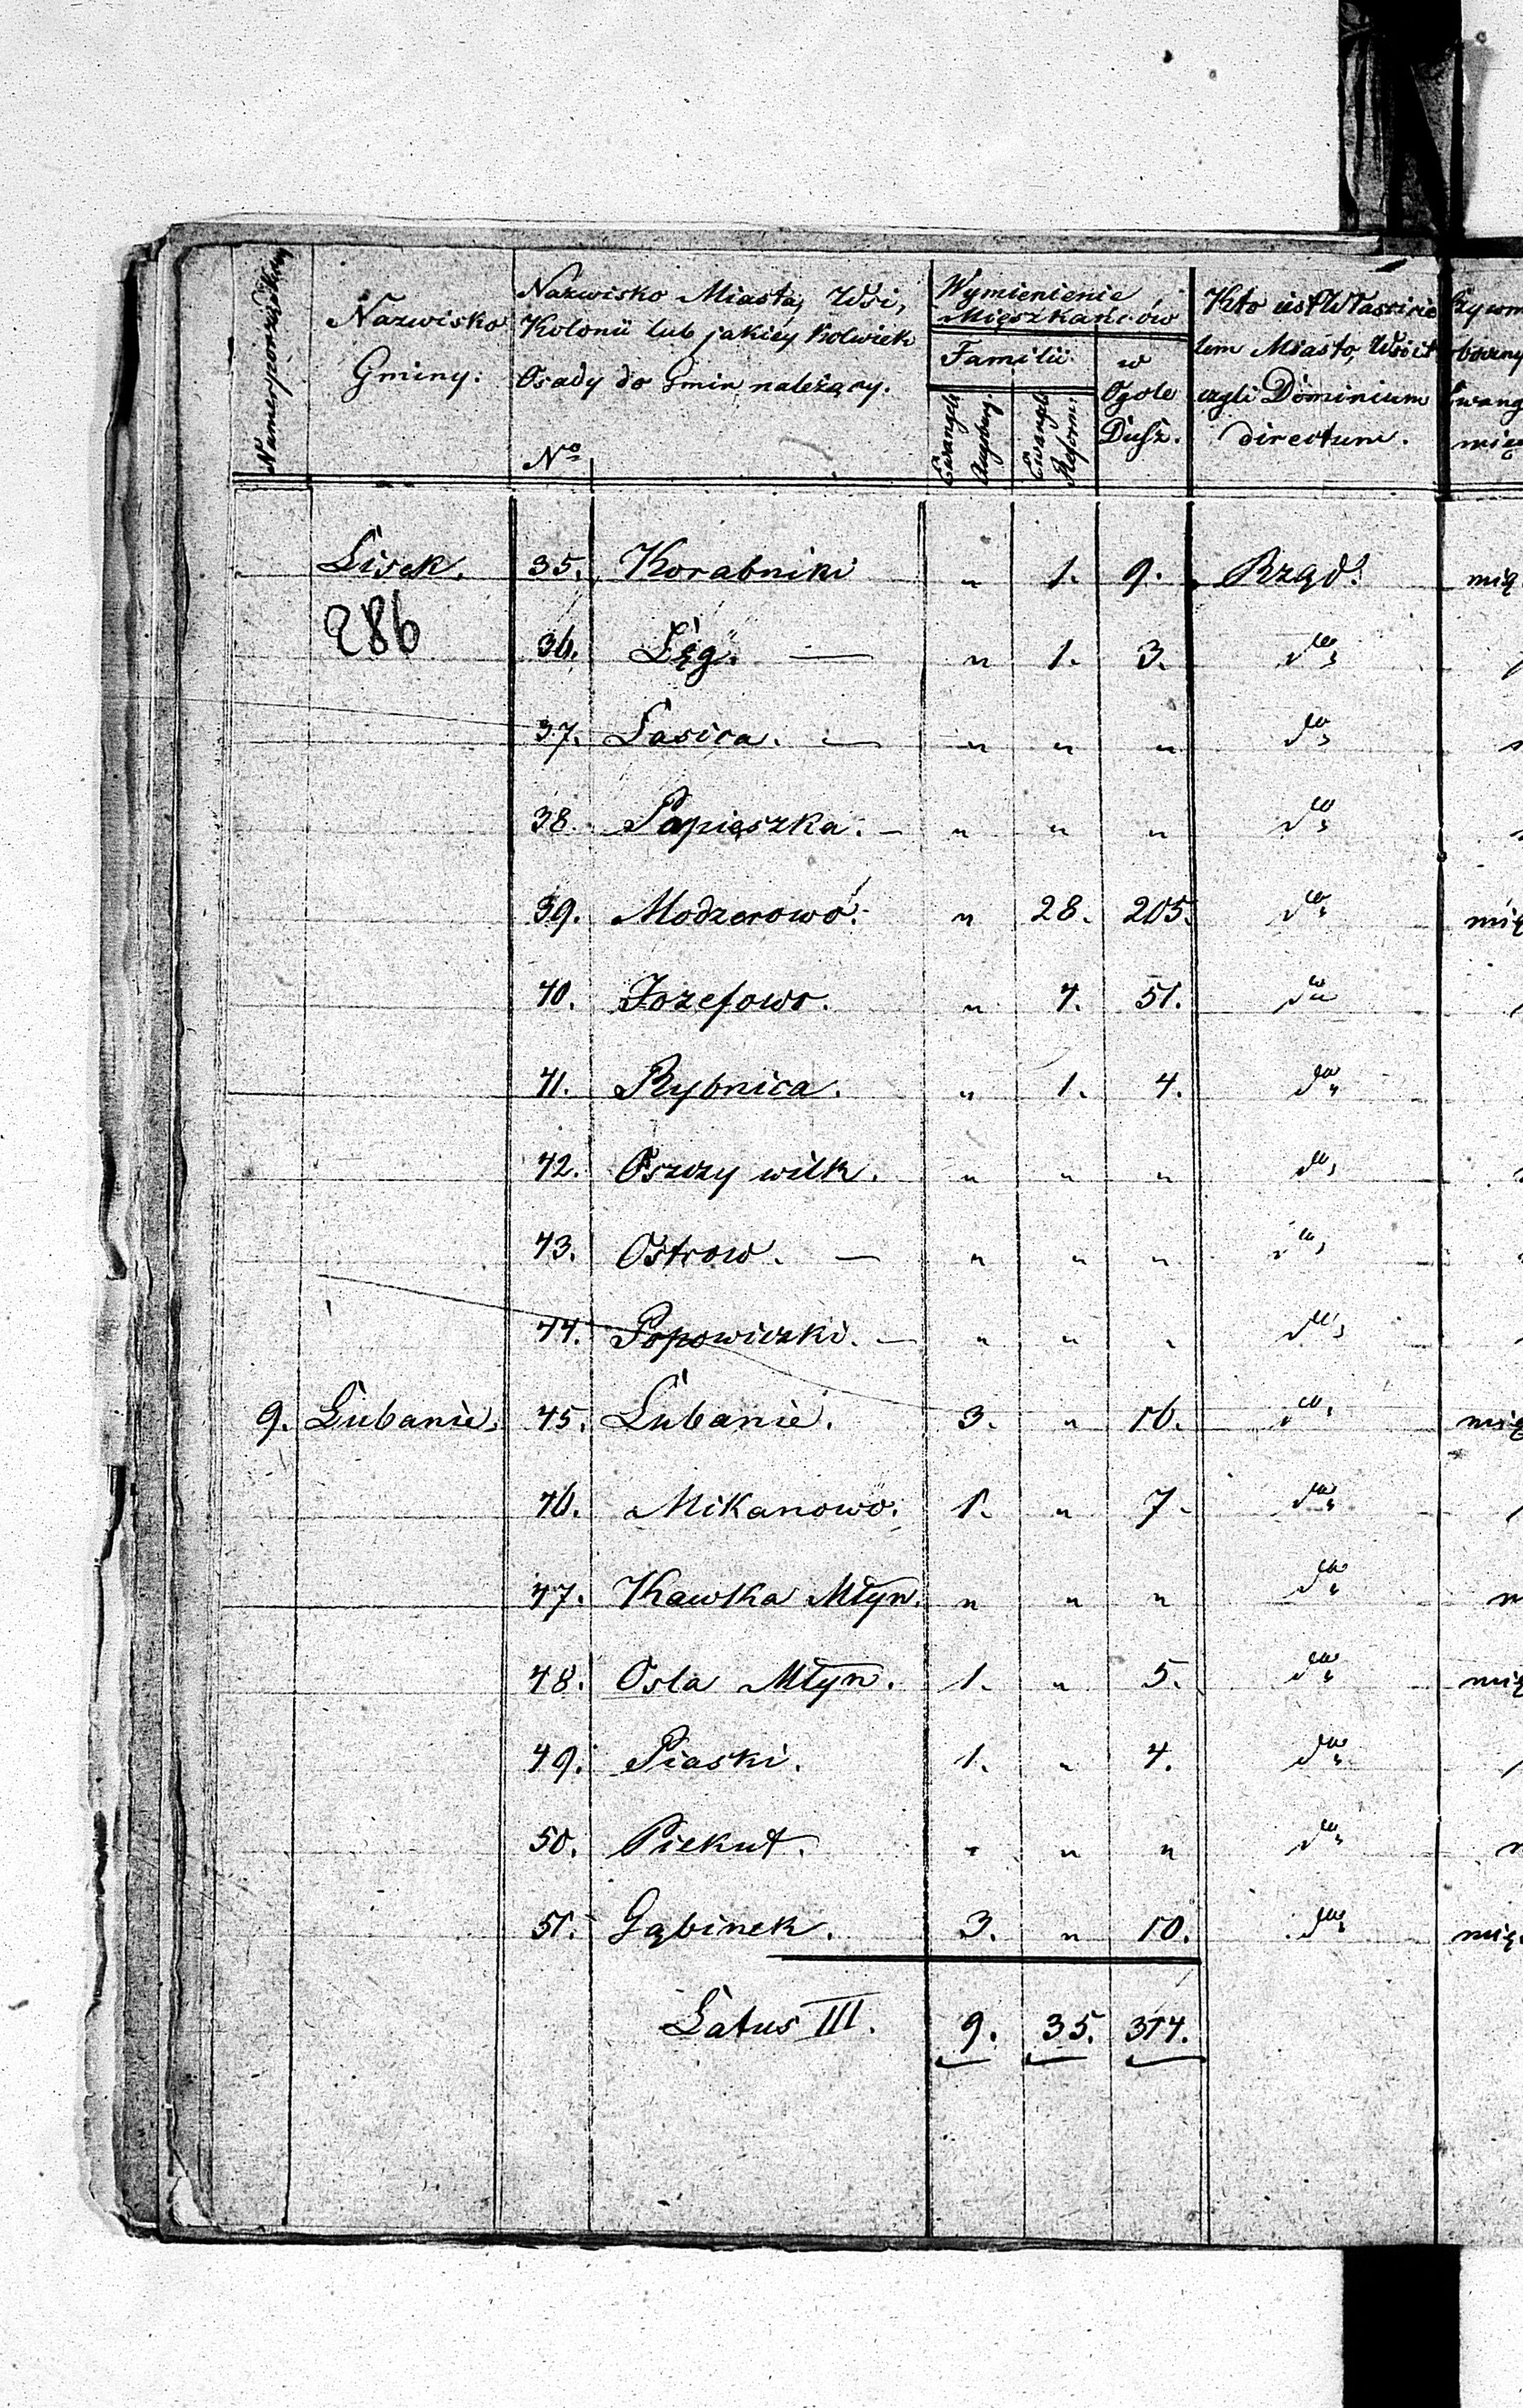 Numer porządkowy
Nazwisko
Gminy:
Nazwisko Miasta, Wsi,
Kolonii lub jakiey kolwiek
Osady do Gmin należący.
No
Wymienienie
Mięszkańców
Familii
Ewangel: Augsburg.
Ewangel: Reform:
w
Ogole
Dusz.
Kto iest Właścicie
lem Miasta, Wsi it
czyli Dominium
directum.
Lisek. 35. Korabniki " 1. 9. Rząd. mię
286
36. Łęg. — " 1. 3. do
37. Lasica. — " " " do
38. Papieszka. — " " " do
39. Modzerowo. " 28. 205. do mię
40. Jozefowo. " 4. 51. do
41. Rybnica. " 1. 4. do
42. Oszczy wilk. " " " do
43. Ostrow. — " " " do
44. Popowiczki. — " " " do
9. Lubanie. 45. Lubanie. 3. " 16. do mię
46. Mikanowo. 1. " 7. do
47. Kawka Młyn. " " " do
48. Osla Młyn. 1. " 5. do mię
49. Piaski. 1. " 4. do
50. Piekut. " " " do
51. Gąbinek. 3. " 10. do mię
Latus III. 9. 35. 314.